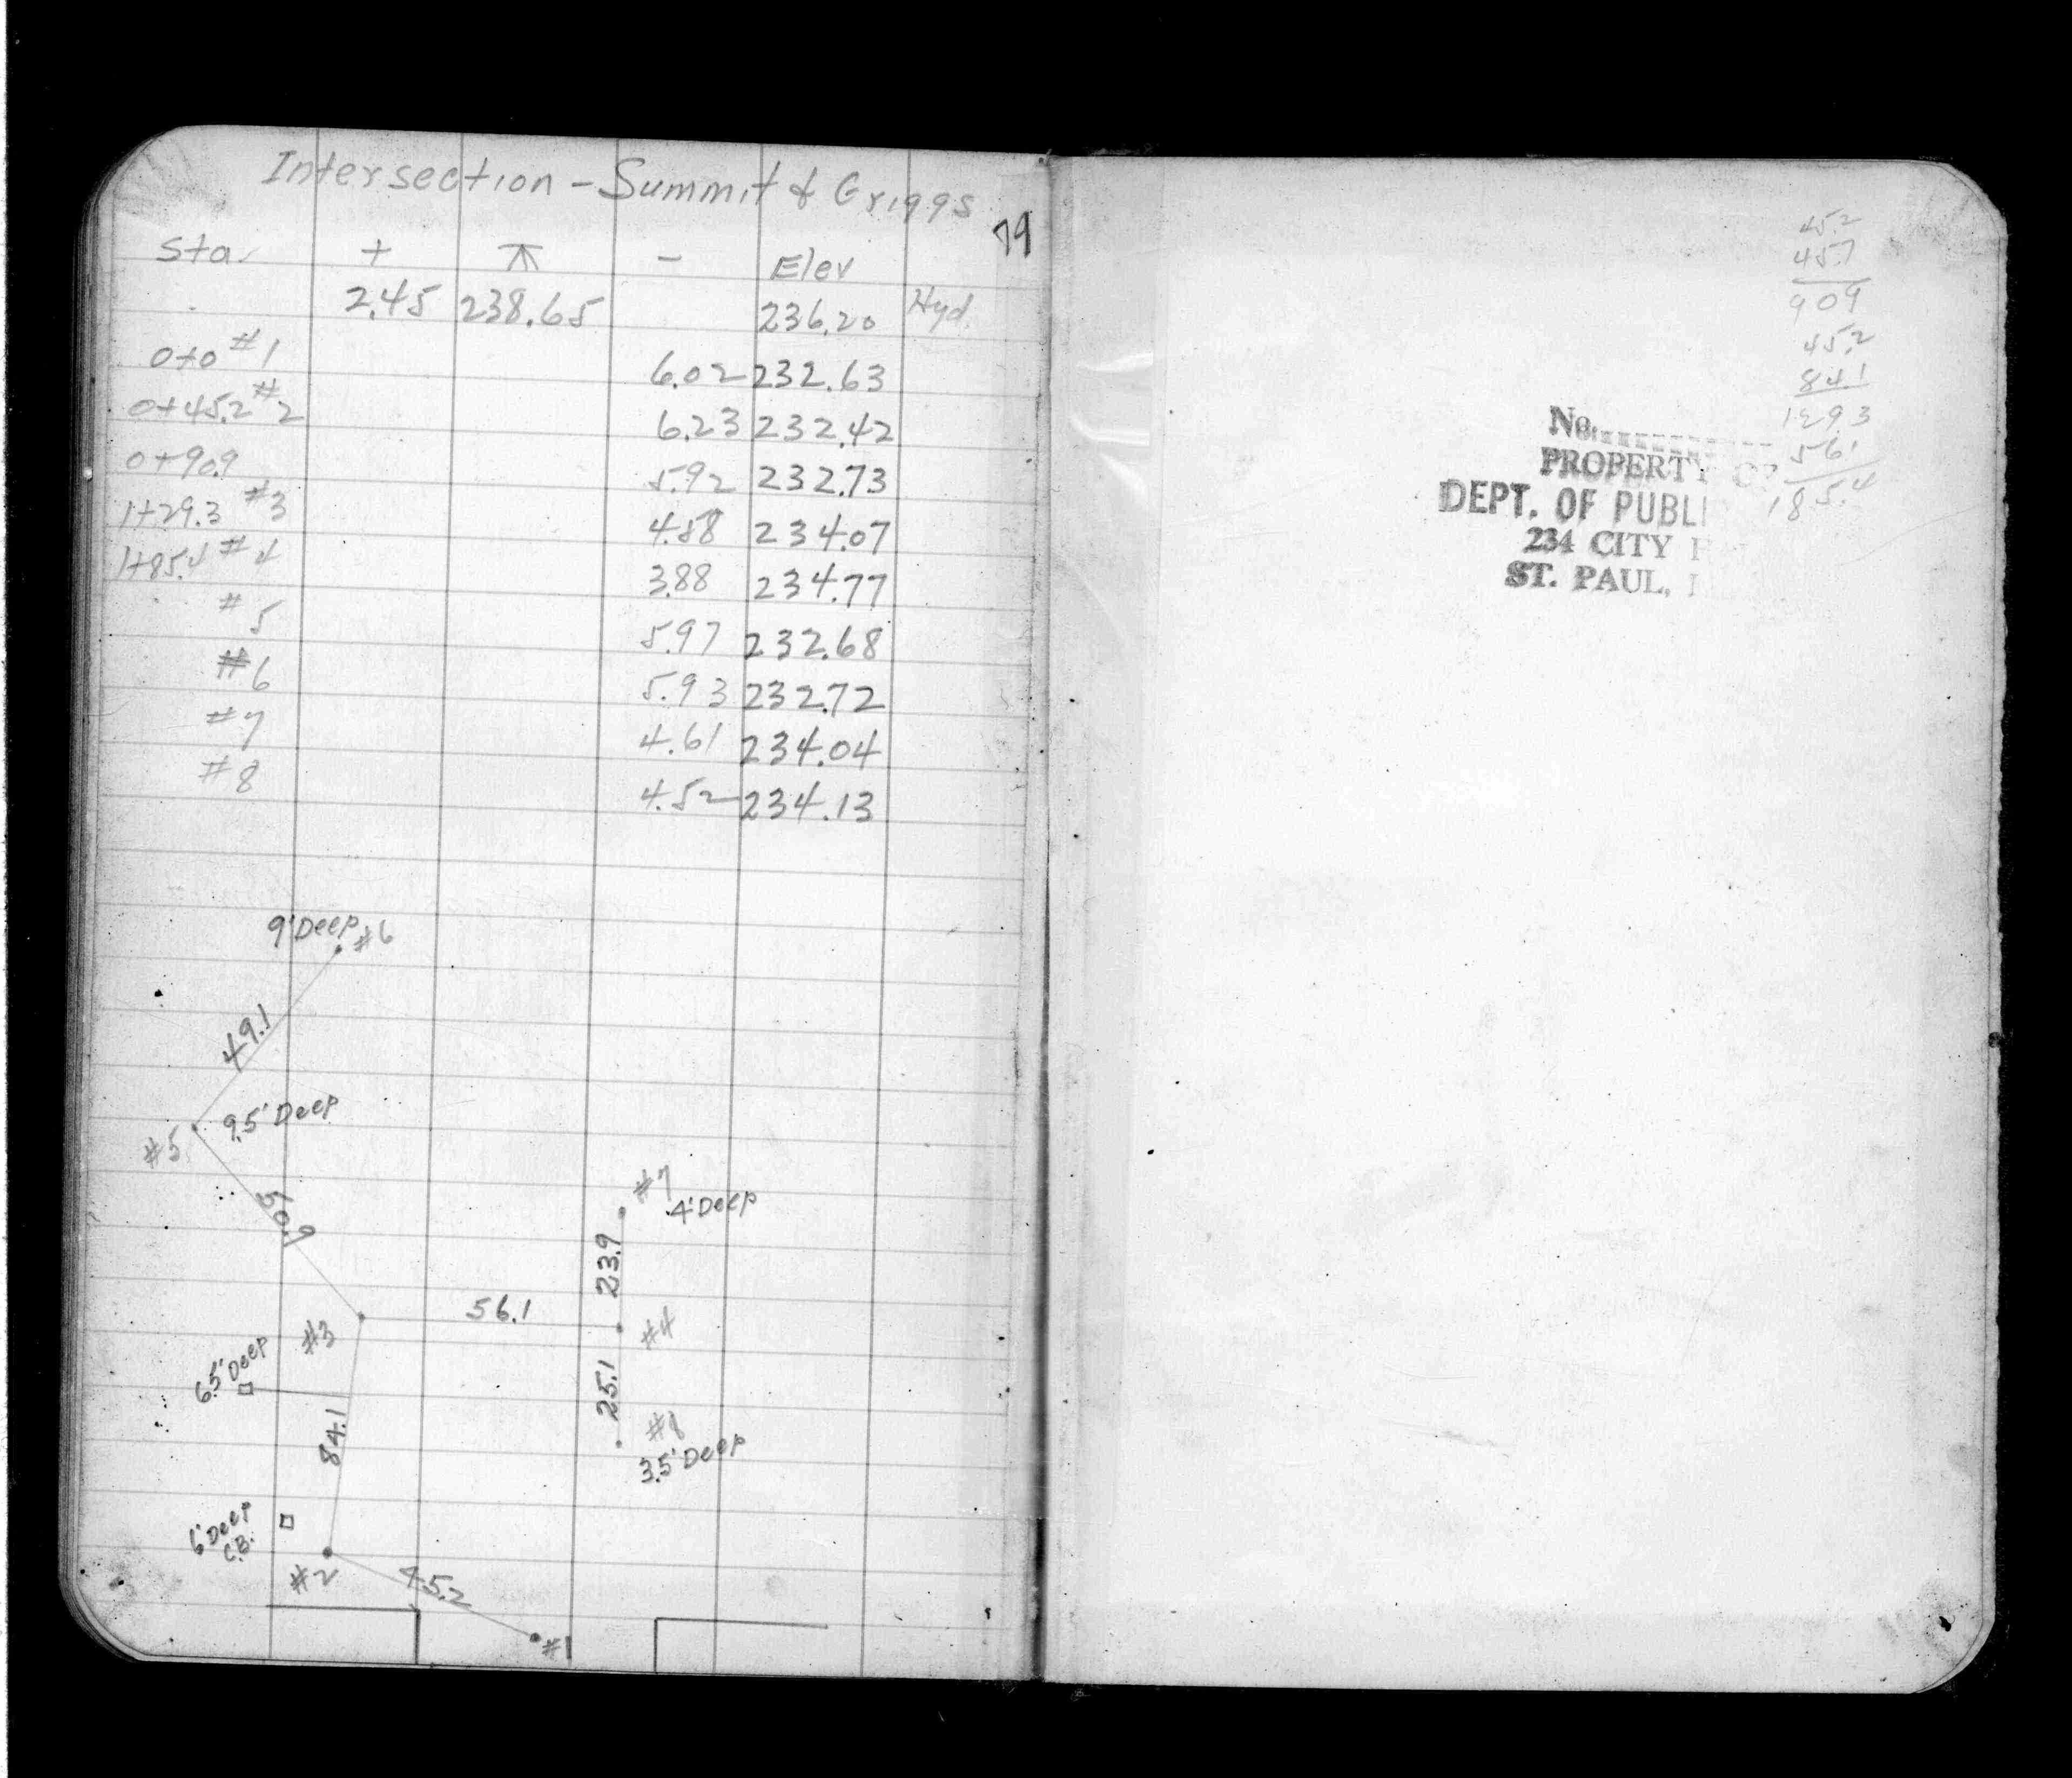 Intersection - Summit & Griggs
79
Sta. + ⊼ - Elev
2.45 238.65 236.20 Hyd.
0+0 #1 6.02 232.63
0+45.2 #2 6.23 232.42
0+90.9 5.92 232.73
1+29.3 #3 4.58 234.07
1+85.4 #4 3.88 234.77
#5 5.97 232.68
#6 5.93 232.72
#7 4.61 234.04
#8 4.52 234.13
9' Deep #6
49.1
9.5' Deep
#5
50.9
#7
4' Deep
23.9
56.1
#3
#4
6.5' Deep
25.1
84.1
#8
3.5' Deep
6' Deep
C.B.
#2
45.2
#1
45.2
45.7
909
45.2
84.1
129.3
56.1
185.4
No.
PROPERTY
DEPT. OF
234 CITY
ST. PAUL,